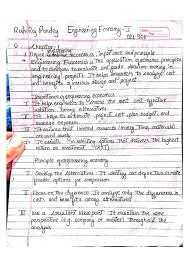 Rishi Raj Pandey Engineering Economy - I
Chapter 1
Define economics. Important and principle
Engineering Economics is the application of economic principles
and to evaluate and guide decision making in
engineering projects. It helps engineers to analyze cost
and benefits of various alternatives.
Importance of engineering economics
I It helps engineers to choose the most cost-effective
solution among alternatives
II It helps to estimate project cost, plan budget and
resources.
III It ensure that limited resources (money, time, materials)
are used wisely.
IV It is selecting options that delivers the highest
return on investment (ROI)
Principle of engineering economy
I Develop the Alternatives: It identify and define two or more
possible options for comparison.
II Focus on the difference: It analyze only the differences in
cost and benefits among alternatives
III Use a consistent viewpoint: It maintain the same
perspective (eg. company or investor) throughout the
analysis